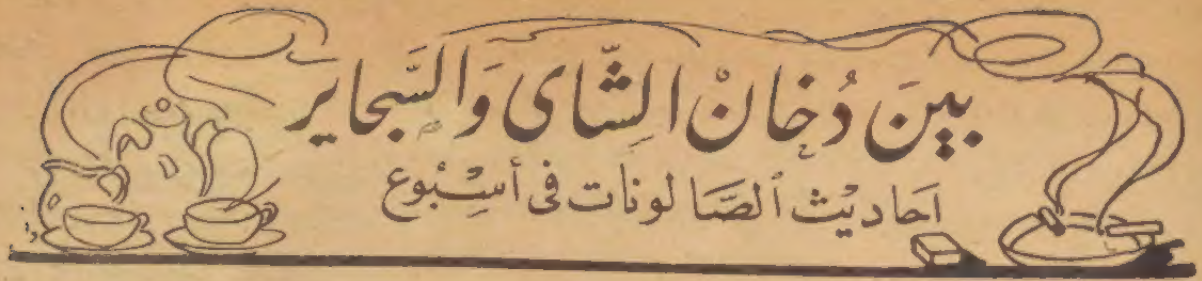 بينَ دُخانْ الشّاى وَالسَّجاير
احَاديْث ٱلصَّالونات فى أسِبُوع